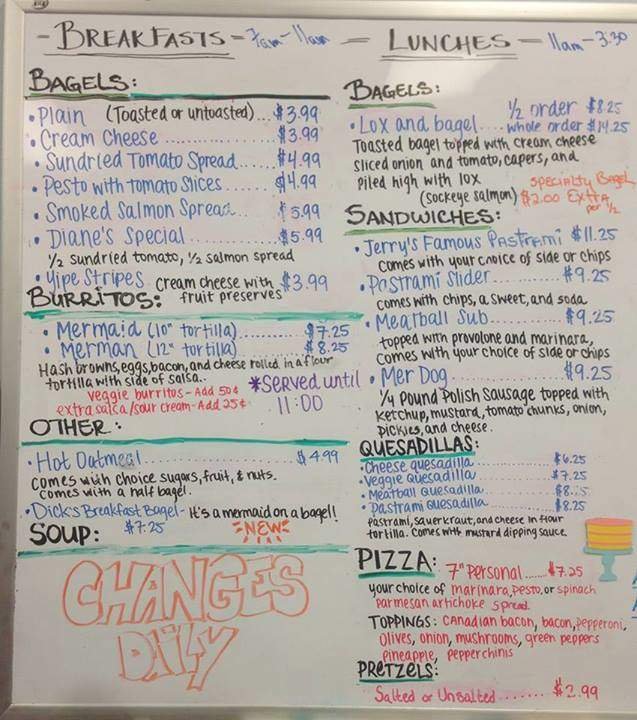 - BREAKFASTS - 7am - 11am
BAGELS:
• Plain (Toasted or untoasted)... $3.99
• Cream Cheese ............... $3.99
• Sundried Tomato Spread...... $4.99
• Pesto with tomato Slices....... $4.99
• Smoked Salmon Spread... $5.99
• Diane's Special .............. $5.99
1/2 sundried tomato, 1/2 salmon spread
• Yipe Stripes cream cheese with $3.99
fruit preserves
BURRITOS:
• Mermaid (10" tortilla)............. $7.25
• Merman (12" tortilla)............. $8.25
Hash browns, eggs, bacon, and cheese rolled in a flour
tortilla with side of salsa..
veggie burritos - Add 50¢
extra salsa/sour cream - Add 25¢
*SERVED until
11:00
OTHER:
• Hot Oatmeal ........................ $4.99
comes with choice sugars, fruit, & nuts.
comes with a half bagel.
• Dick's Breakfast Bagel - it's a mermaid on a bagel!
$7.25
NEW
SOUP:
CHANGES
DAILY
= LUNCHES - 11am - 3:30
BAGELS:
1/2 order $8.25
• Lox and bagel.... whole order $14.25
Toasted bagel topped with cream cheese
sliced onion and tomato, capers, and
piled high with lox
(sockeye salmon)
SPECIALTY Bagel
$2.00 EXTRA
per 1/2
SANDWICHES:
• Jerry's Famous Pastrami $11.25
comes with your choice of side or chips
• Pastrami Slider............. $9.25
comes with chips, a sweet, and soda
• Meatball Sub............. $9.25
topped with provolone and marinara,
comes with your choice of side or chips
• Mer Dog................. $9.25
1/4 Pound Polish Sausage topped with
ketchup, mustard, tomato chunks, onion,
pickles, and cheese.
QUESADILLAS:
• Cheese quesadilla ............ $6.25
• Veggie quesadilla ............ $7.25
• Meatball Quesadilla ............
• Pastrami Quesadilla ............ $8.25
Pastrami, sauerkraut, and cheese in flour
tortilla. Comes with mustard dipping sauce.
PIZZA: 7" Personal ...... $7.25
your choice of marinara, pesto, or spinach
parmesan artichoke spread.
TOPPINGS: Canadian bacon, bacon, pepperoni,
Olives, onion, mushrooms, green peppers
pineapple, pepperchinis
PRETZELS:
Salted or Unsalted ........ $2.99